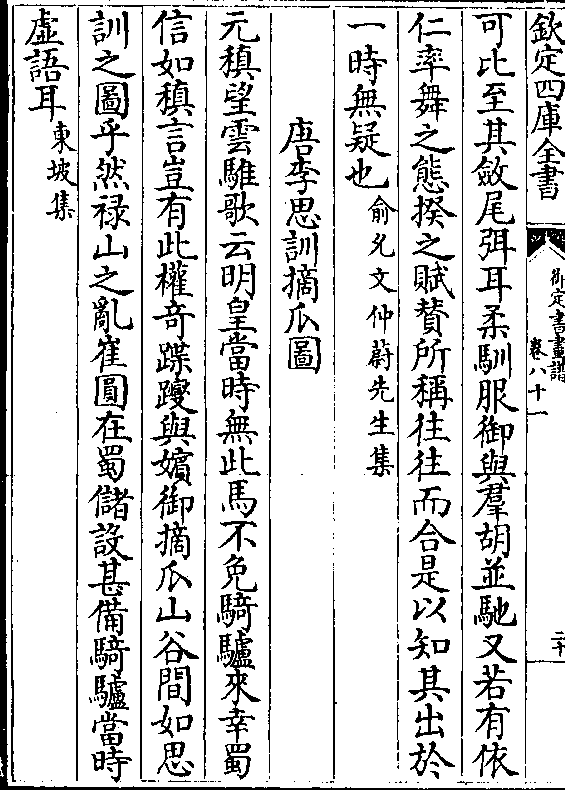 欽定四庫全書
御定書畫譜
卷八十一
二十
可比至其斂尾弭耳柔馴服御與羣胡並馳又若有依
仁率舞之態揆之賦贊所稱往往而合是以知其出於
一時無疑也俞允文仲蔚先生集
唐李思訓摘瓜圖
元稹望雲騅歌云明皇當時無此馬不免騎驢來幸蜀
信如稹言豈有此權奇蹀躞與嬪御摘瓜山谷間如思
訓之圖乎然禄山之亂崔圓在蜀儲設甚備騎驢當時
虚語耳東坡集